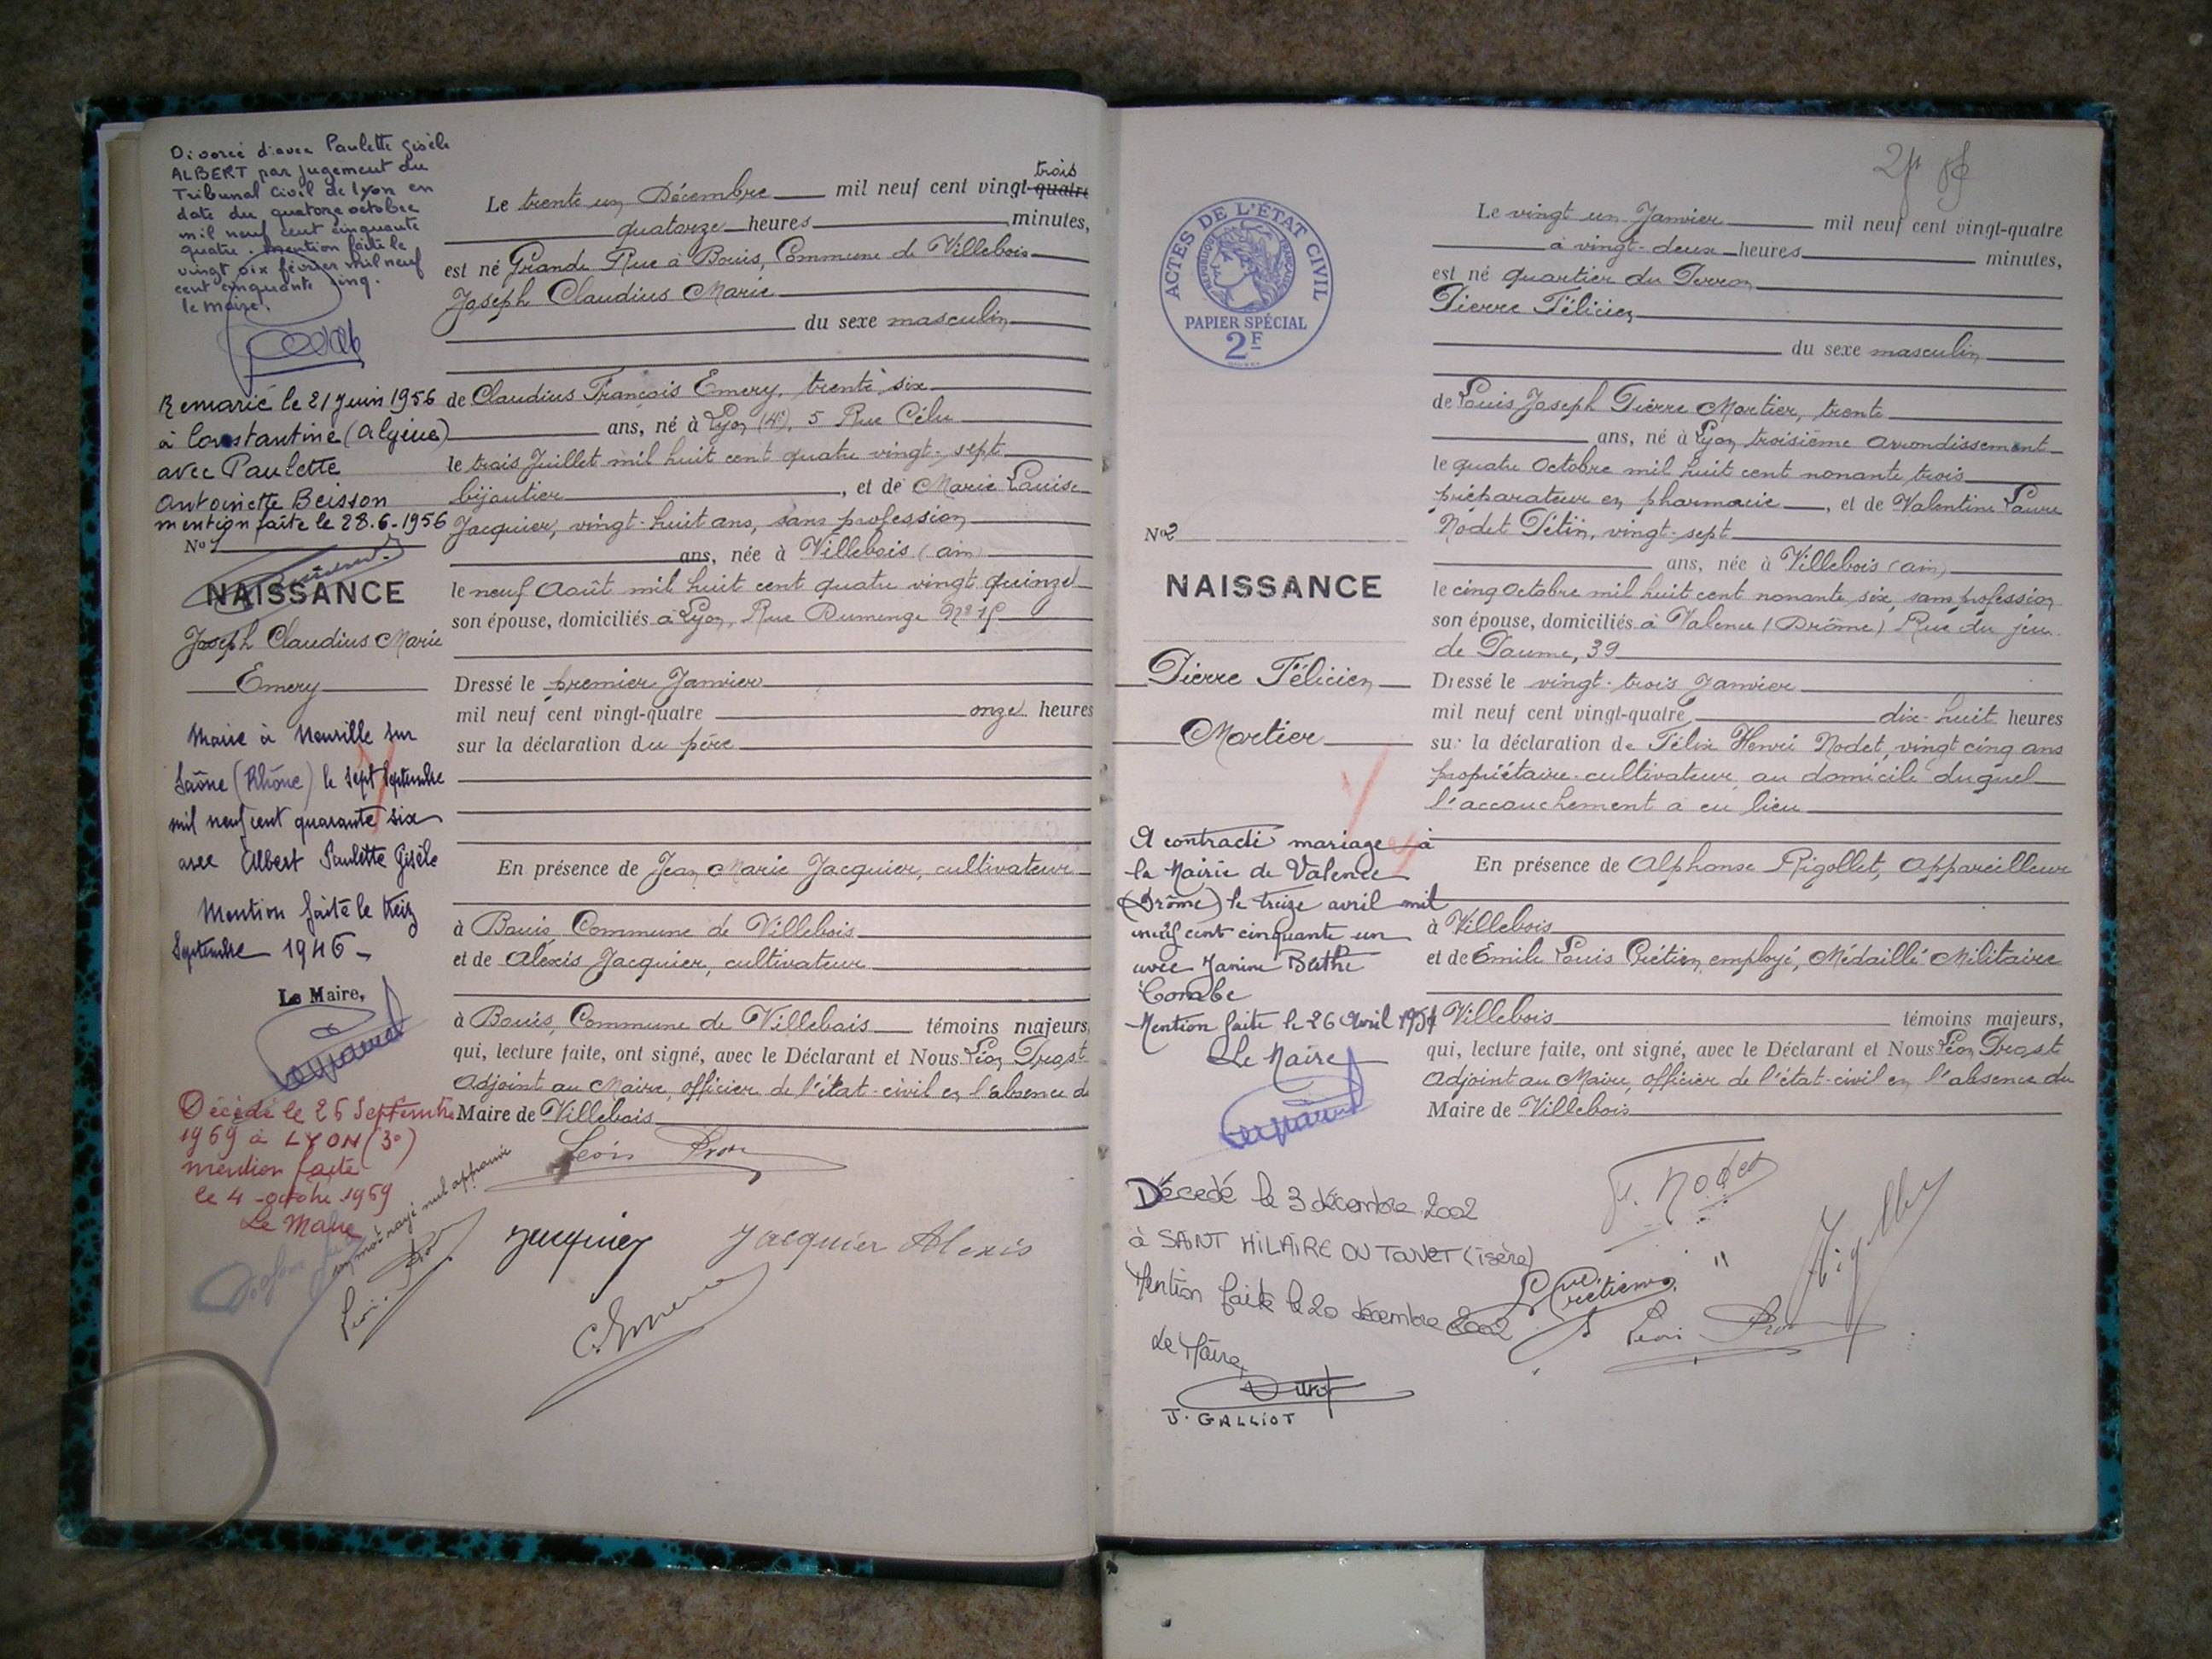 Divorcé d'avec Paulette Gisèle
ALBERT par jugement du
Tribunal Civil de Lyon en
date du quatorze octobre
mil neuf cent cinquante
quatre. Mention faite le
vingt six février mil neuf
cent cinquante cinq.
le maire.
Remarié le 21 juin 1956
à Constantine (Algérie)
avec Paulette
Antoinette Beisson
mention faite le 28.6.1956
No 1
NAISSANCE
Joseph Claudius Marie
Emery
Marié à Neuville sur
Saône (Rhône) le sept septembre
mil neuf cent quarante six
avec Albert Paulette Gisèle
Mention faite le treize
Septembre 1946
Le Maire,
Décédé le 26 Septembre
1969 à LYON (3e)
mention faite
le 4 octobre 1969
Le Maire
trois
Le trente un Décembre mil neuf cent vingt-quatre
quatorze heures minutes,
est né Grande Rue à Bouis, Commune de Villebois
Joseph Claudius Marie
du sexe masculin
de Claudius François Emery, trente six
ans, né à Lyon (4e), 5 Rue Célu
le trois Juillet mil huit cent quatre vingt-sept
bijoutier, et de Marie Louise
Jacquier, vingt-huit ans, sans profession
ans, née à Villebois (ain)
le neuf Août mil huit cent quatre vingt quinze
son épouse, domiciliés à Lyon, Rue Dumenge No
Dressé le premier Janvier
mil neuf cent vingt-quatre onze heures
sur la déclaration du père
En présence de Jean Marie Jacquier, cultivateur
à Bouis Commune de Villebois
et de Alexis Jacquier, cultivateur
à Bouis, Commune de Villebois témoins majeurs,
qui, lecture faite, ont signé, avec le Déclarant et Nous Léon Prost
Adjoint au Maire, officier de l'état-civil en l'absence du
Maire de Villebois
Léon Prost
un mot rayé nul approuvé
Léon Prost
Jacquier
Jacquier Alexis
C. Emery
ACTES DE L'ÉTAT CIVIL
RÉPUBLIQUE FRANÇAISE
PAPIER SPÉCIAL
2F
No 2
NAISSANCE
Pierre Félicien
Mortier
A contracté mariage à
la Mairie de Valence
(Drôme) le treize avril mil
neuf cent cinquante un
avec Janine Berthe
Combe
Mention faite le 26 Avril 1951
Le Maire
Décedé le 3 décembre 2002
à SAINT HILAIRE DU TOUVET (isère)
Mention faite le 20 décembre 2002
Le Maire,
J. GALLIOT
Le vingt un Janvier mil neuf cent vingt-quatre
à vingt-deux heures minutes,
est né quartier du Perron
Pierre Félicien
du sexe masculin
de Louis Joseph Pierre Mortier, trente
ans, né à Lyon troisième arrondissement
le quatre Octobre mil huit cent nonante trois
préparateur en pharmacie, et de Valentine Laure
Nodet Pétin, vingt-sept
ans, née à Villebois (ain)
le cinq Octobre mil huit cent nonante six, sans profession
son épouse, domiciliés à Valence (Drôme) Rue du jeu
de Paume, 39
Dressé le vingt-trois Janvier
mil neuf cent vingt-quatre dix-huit heures
sur la déclaration de Félix Henri Nodet, vingt cinq ans
propriétaire-cultivateur, au domicile duquel
l'accouchement a eu lieu
En présence de Alphonse Rigollet, Appareilleur
à Villebois
et de Emile Louis Crétien, employé, Médaillé Militaire
à Villebois témoins majeurs,
qui, lecture faite, ont signé, avec le Déclarant et Nous Léon Prost
Adjoint au Maire, officier de l'état-civil en l'absence du
Maire de Villebois
F. Nodet
Rigollet
Crétien
Léon Prost